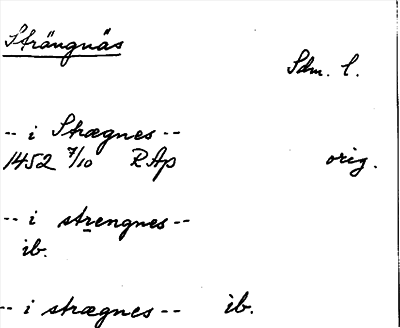 Strängnäs
Sdm. l.
-- i Strægnes --
1452 7/10 RAp orig.
-- i strengnes --
ib.
-- i strægnes -- ib.